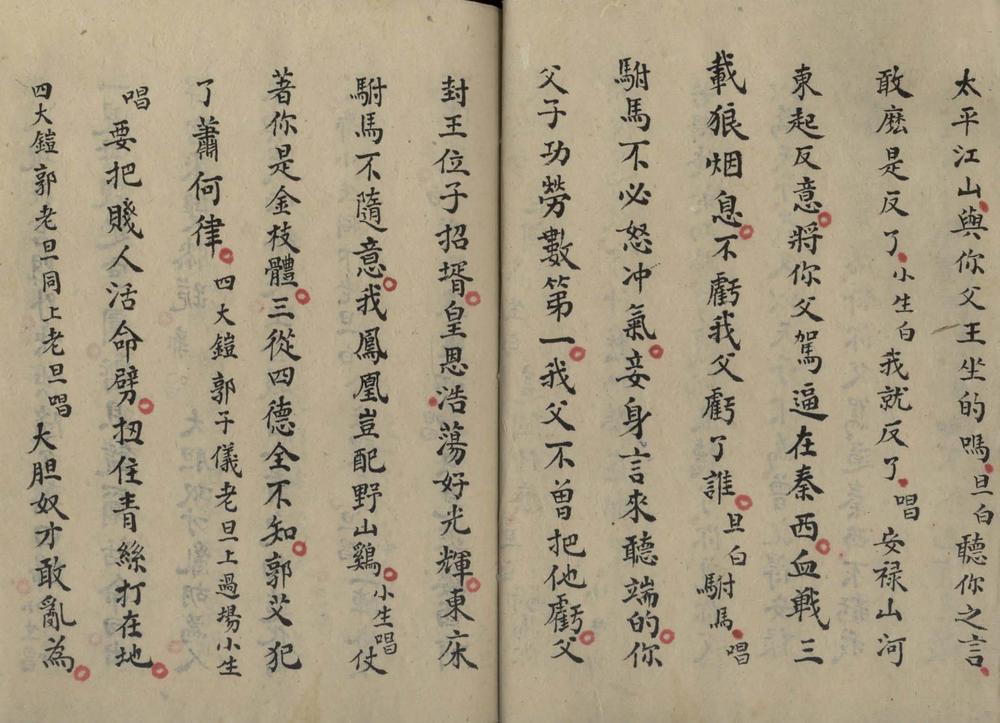 太平江山與你父王坐的嗎旦白聽你之言
敢麼是反了小生白我就反了唱安禄山河
東起反意將你父駕逼在秦西血戰三
載狼烟息不虧我父虧了誰旦白駙馬唱
駙馬不必怒冲氣妾身言來聽端的你
父子功勞數第一我父不曾把他虧父
封王位子招壻皇恩浩蕩好光輝東床
駙馬不隨意我鳳凰豈配野山鷄小生唱仗
著你是金枝體三從四德全不知郭艾犯
了蕭何律四大鎧郭子儀老旦上過場小生
唱要把賤人活命劈扭住青絲打在地
四大鎧郭老旦同上老旦唱大胆奴才敢亂為